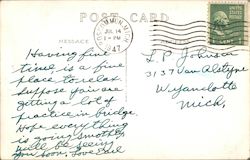 POST CARD
MESSAGE
JUL 14
1 - PM
1947
Having fine
time, is a fine
place to relax.
Suppose you are
getting a lot of
practice in bridge.
Hope everything
is going smoothly
Will be seeing
you soon, Love
L. P. Johnson
3137 Van Alstyne
Wyandotte
Mich.